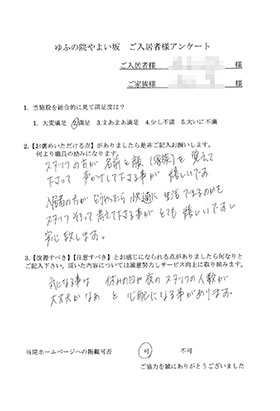 ゆふの院やよい坂　ご入居者様アンケート
ご入居者様　様
ご家族様　様
1. 当施設を総合的に見て満足度は？
1. 大変満足　2.満足　3.まあまあ満足　4.少し不満　5.大いに不満
2.【お褒めいただける点】がありましたら是非ご記入お願いします。
何より職員の励みになります。
スタッフの方が 名前と顔（家族）を 覚えて
下さって 声かけして下さる事が 嬉しいです。
入居者の方が どうやったら快適に 生活できるのかを
スタッフ そろって 考えて下さる事が とても 嬉しいですし
安心致します。
3.【改善すべき】【注意すべき】とお感じになられる点がありましたら何なりと
ご記入下さい。頂いた内容については誠意努力しサービス向上に取り組みます。
気になる事は 休みの日や夜の スタッフの人数が
大丈夫かなぁ と 心配になる事があります。
当院ホームページへの掲載可否　可　不可
ご協力を誠にありがとうございました